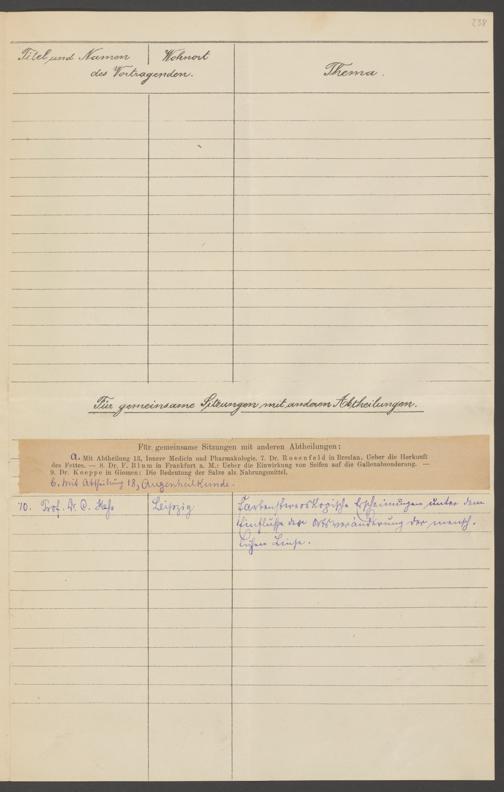 238
Titel und Namen | Wohnort
des Vortragenden.
Thema.
Für gemeinsame Sitzungen mit anderen Abtheilungen.
Für gemeinsame Sitzungen mit anderen Abtheilungen:
a. Mit Abtheilung 13, Innere Medicin und Pharmakologie. 7. Dr. Rosenfeld in Breslau. Ueber die Herkunft
des Fettes. — 8. Dr. F. Blum in Frankfurt a. M.: Ueber die Einwirkung von Seifen auf die Gallenabsonderung. —
9. Dr. Koeppe in Giessen: Die Bedeutung der Salze als Nahrungsmittel.
b. Mit Abtheilung 18, Augenheilkunde.
10. Prof. Dr. Leipzig Farbenstereoskopische Erscheinungen unter dem
Einflusse der Ortsveränderung der mensch-
lichen Linse.